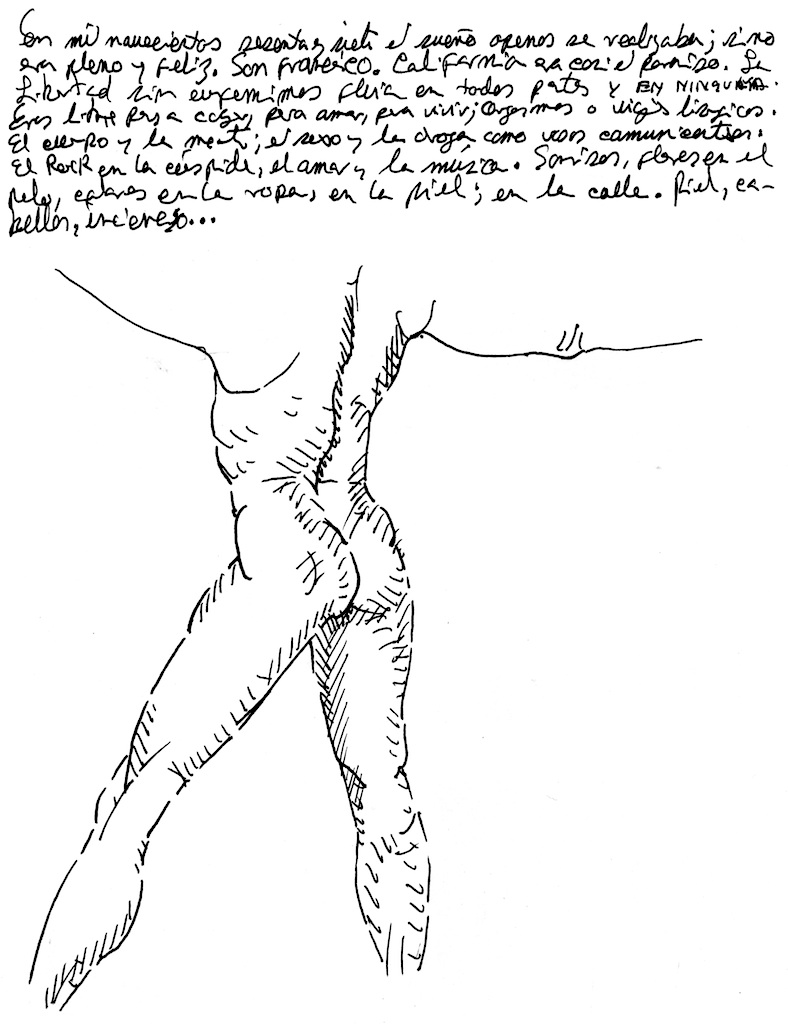 En mil novecientos sesenta y siete el sueño apenas se realizaba; si no
era pleno y feliz. San Francisco. California era casi el paraíso. La
Libertad sin eufemismos fluía en todas partes y EN NINGUNA.
Eras libre para coger, para amar, para vivir; orgasmos o viajes lisérgicos.
El cuerpo y la mente; el sexo y la droga como vasos comunicantes.
El Rock en la cúspide, el amor y la música. Sonrisas, flores en el
pelo, colores en la ropa, en la piel; en la calle. Piel, ca-
bellos, incienso...